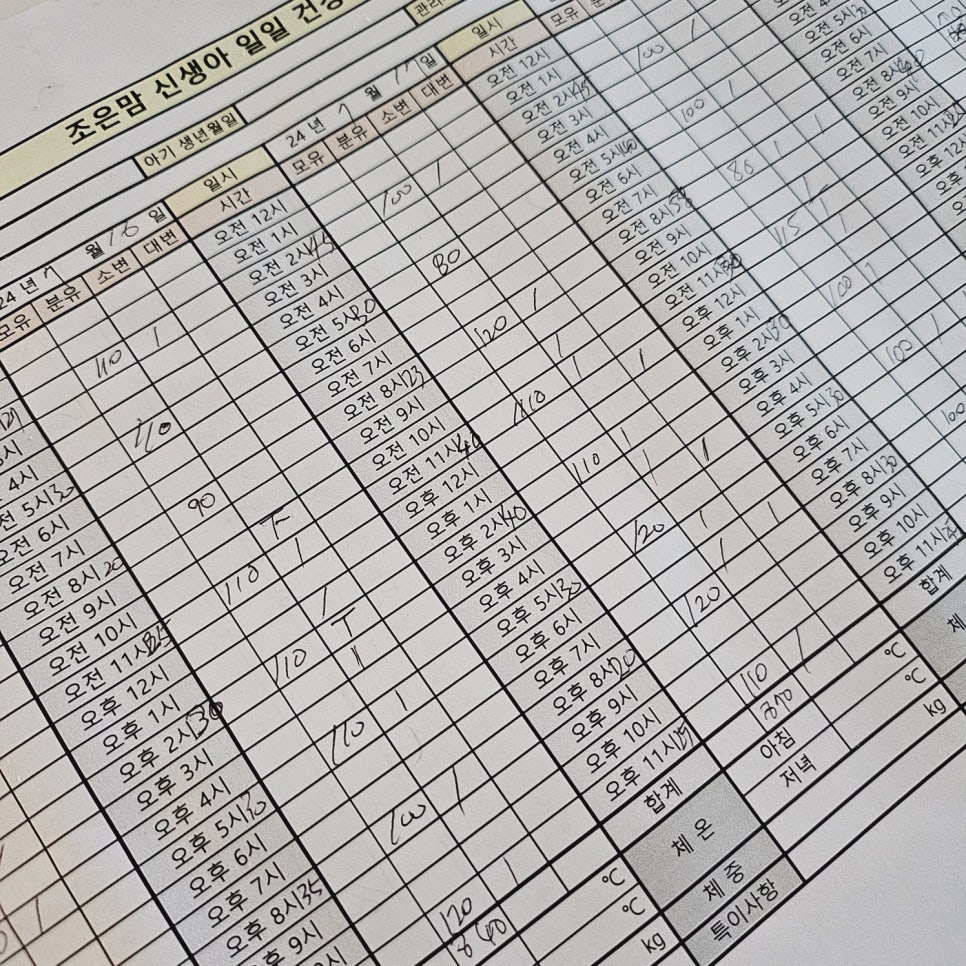 조은맘 신생아 일일 건
관리
아기 생년월일
24 년 7 월 16 일
모유 분유 소변 대변
일시
시간
24 년 7 월 17 일
모유 분유 소변 대변
일시
시간
모유
4시
오전 5시30
오전 6시
오전 7시
오전 8시20
오전 9시
오전 10시
오전 11시
오후 12시
오후 1시
오후 2시30
오후 3시
오후 4시
오후 5시
오후 6시
오후 7시
오후 8시35
오후 9시
110 1
110
90
110 1
110
110 1
100 1
120 1
840
오전 12시
오전 1시
오전 2시45
오전 3시
오전 4시
오전 5시20
오전 6시
오전 7시
오전 8시23
오전 9시
오전 10시
오전 11시40
오후 12시
오후 1시
오후 2시40
오후 3시
오후 4시
오후 5시30
오후 6시
오후 7시
오후 8시20
오후 9시
오후 10시
오후 11시
합계
체 온
체 중
특이사항
100 1
80
120 1
110
110
120 1
120
110 1
870
아침 ℃
저녁 ℃
kg
오전 12시
오전 1시
오전 2시45
오전 3시
오전 4시
오전 5시
오전 6시
오전 7시
오전 8시
오전 9시
오전 10시
오전 11시
오후 12시
오후 1시
오후 2시30
오후 3시
오후 4시
오후 5시30
오후 6시
오후 7시
오후 8시30
오후 9시
오후 10시
오후 11시
합계
체
100 1
100 1
80 1
115
100
100 1
100
오전 5시30
오전 6시
오전 7시
오전 8시
오전 9시
오전 10시
오전 11시
오후 12시
℃
℃
kg